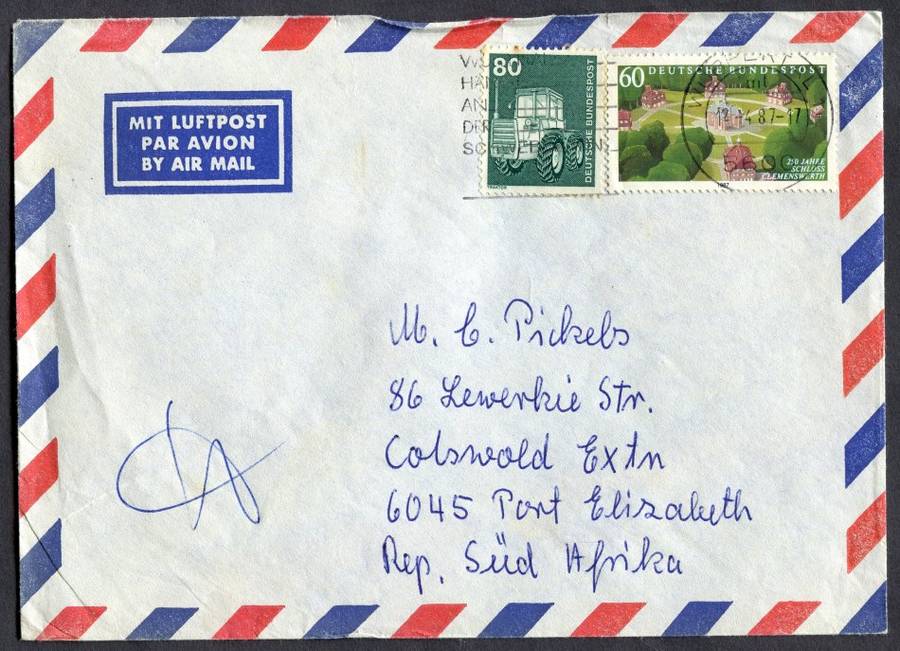 MIT LUFTPOST
PAR AVION
BY AIR MAIL
80
DEUTSCHE BUNDESPOST
TRAKTOR
60 DEUTSCHE BUNDESPOST
250 JAHRE
SCHLOSS
CLEMENSWERTH
1987
87-17
5600
M. C. Pickels
86 Lewerkie Str.
Cotswold Extn
6045 Port Elizabeth
Rep. Süd Afrika